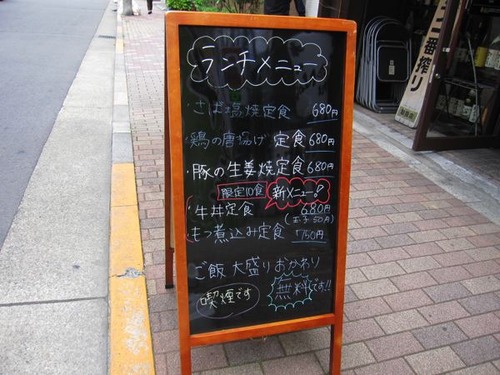 ランチメニュー
・さば塩焼定食 680円
鶏の唐揚げ定食 680円
・豚の生姜焼定食 680円
限定10食 新メニュー!
・牛丼定食 680円
(玉子50円)
もつ煮込み定食 750円
ご飯大盛りおかわり
無料です!!
喫煙です
一番搾り